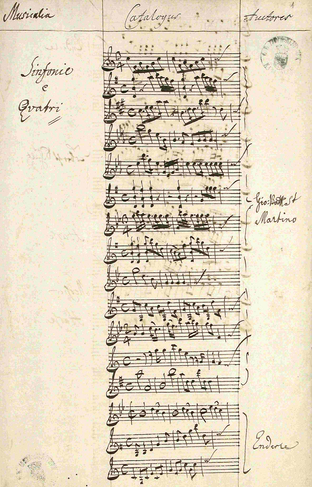 Musicalia
Catalogus
Auctores
Sinfonie
e
Qvatri
Gio: Batt: St
Martino